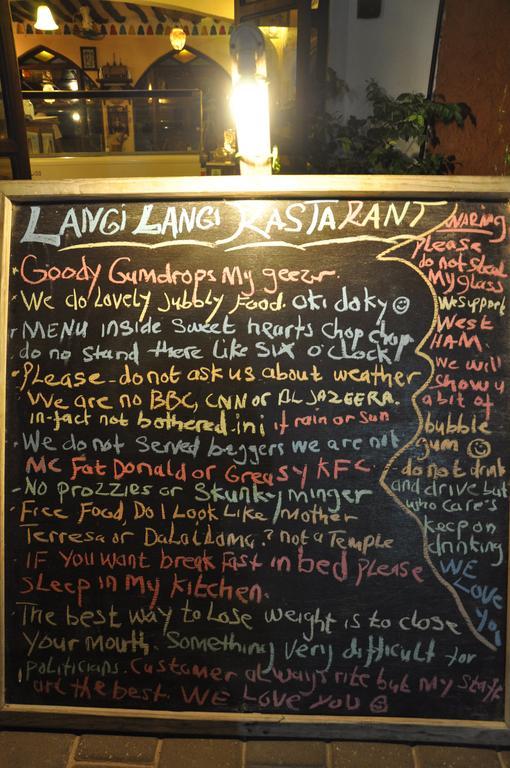 LANGI LANGI RASTARANT
*Goody Gumdrops My geezr.
*We do Lovely Jubbly Food. oki daky ☺
MENU inside Sweet hearts chop chop
do no stand there like SIX O'CLOCK!
Please do not ask us about weather
We are no BBC, CNN or AL JAZEERA.
in-fact not bothered ini if rain or sun
We do not Served beggers we are not
Mc Fat Donald or Greasy KFC
NO Prozzies or Skunky/minger
Free Food, Do I Look Like /Mother
Terresa or DaLaiLama? not a Temple
IF You want break Fast in bed please
SLeep in My Kitchen.
The best way to Lose weight is to close
Your Mouth. Something very difficult for
politicians. Customer always rite but My Staff
are the best. WE LOVE YOU ☺
WARING
Please
do not steal
My glass
We support
West
HAM
We will
show u
a bit of
bubble
gum ☺
do not drink
and drive but
who care's
keep on
drinking
WE
LOVE
YOU